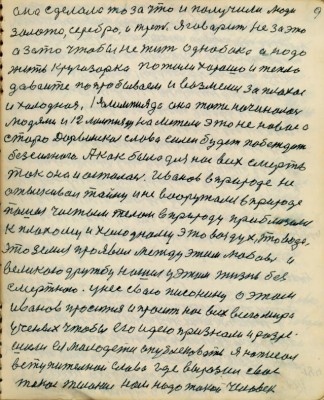 она сделало то за что и получили люди
золото, серебро, и медь. Я говорит не за это
а за то чтобы не жит однобоко а надо
жить кругозорко пожили хорошо и тепло
давайте попробываем и возмеми за плохое
и холодное, она тоже начиналась
людями и это не новое а
старо Дарвинская слова силен будет побеждать
безсилнога. А как была для нас всех смерть
так она и осталась. Иванов в природе не
отыскивал тайну и не вооружали в природе
пошел чистым телом в природу приблизился
к плохому и холодному это воздух, то вода,
это земля проявил между этим любовь и
великаю дружбу нашел у этим жизнь без
смертною. унес свою писонину о этом
Иванов просится и просит нас всех всего мира
ученых чтобы его идею признали и разре-
шили ей молодети опубликовать Я написал
вступителная слова где выразил свое
такое желание нам надо такой человек